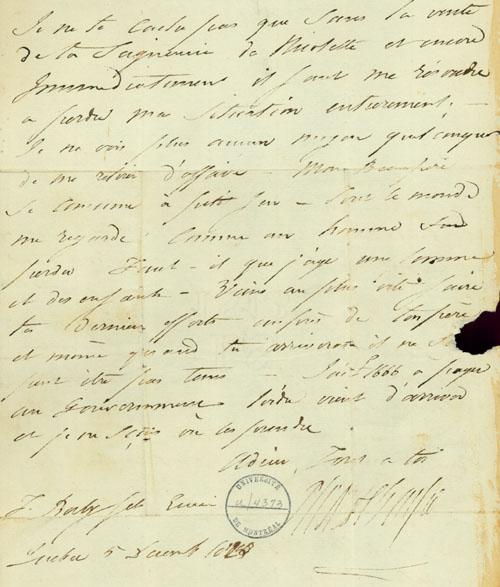 Je ne te cache pas que sans la vente
de la Seigneurie de Nicolette et encore
Immediatement il faut me résoudre
a perdre ma situation entierement. —
Je ne vois plus aucun moyen quelconque
de me retirer d'affaire — Mon Beaupère
se consume à petit feu — tout le monde
me regarde comme un homme
perdu Faut-il que j'aye une femme
et des enfants — Viens au plus vite faire
tes Derniers efforts auprès de ton père
et même quand tu arriveras il ne
peut être pas tems — 1666 a payer
au Gouvernement l'ordre vient d'arriver
et je ne sçais où les prendre
adieu, Tout a toi
Quebec 5
UNIVERSITÉ
U/4373
DE MONTRÉAL